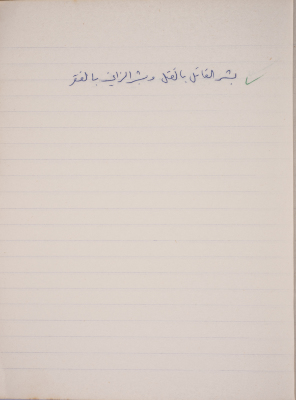 بشر القاتل بالقتل وبشر الزاني بالفقر